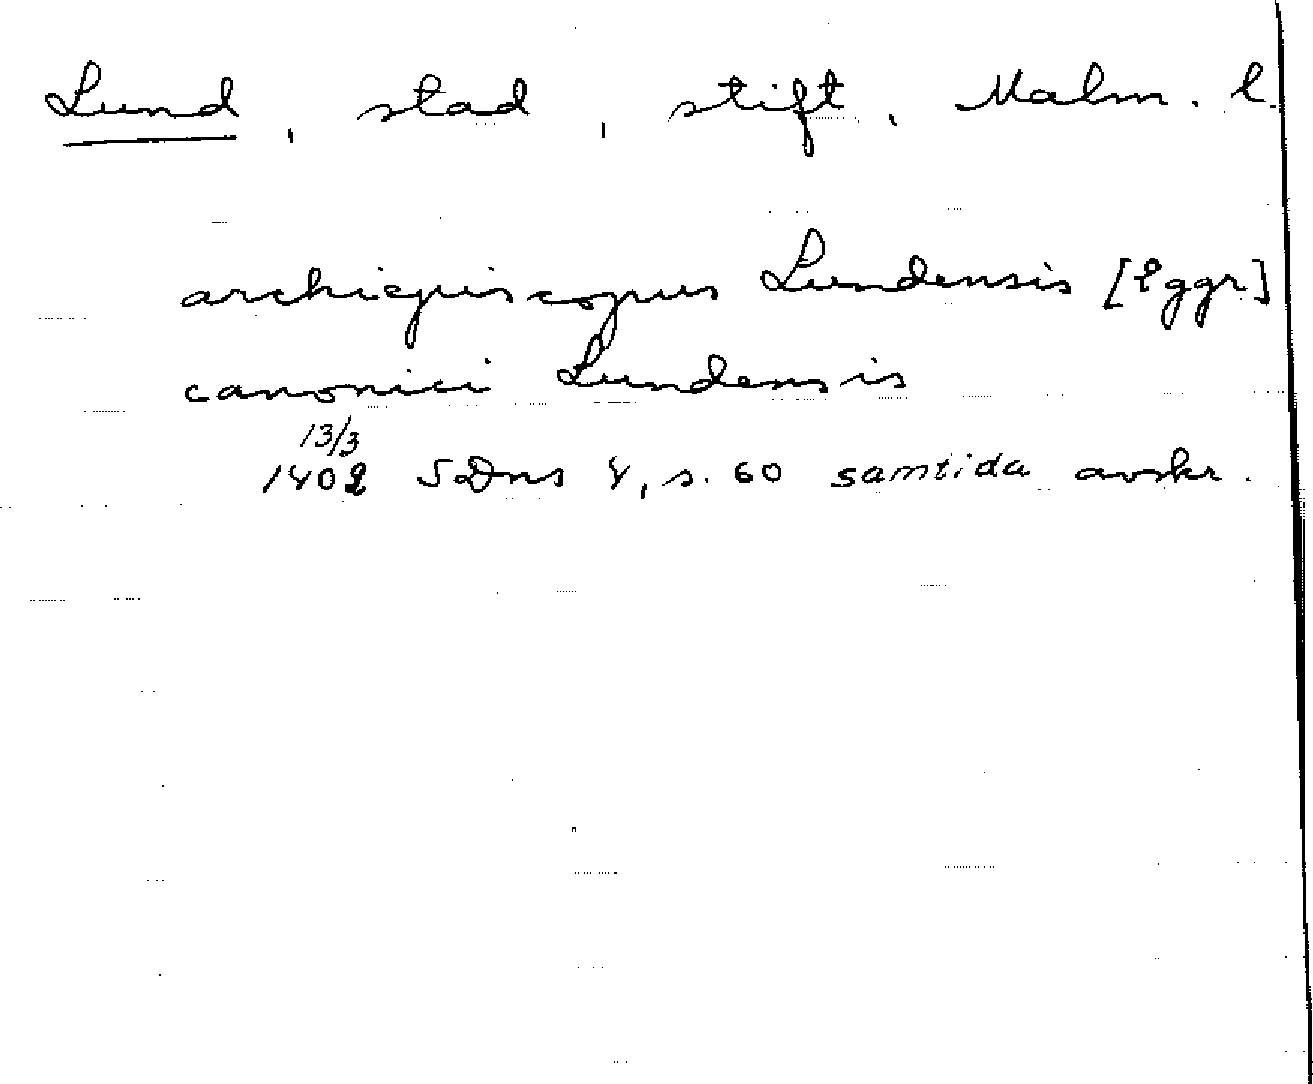 Lund, stad, stift, Malm. l.
archiepiscopus Lundensis [2 ggr]
canonici Lundensis
13/3
1402 SDns 4, s. 60 samtida avskr.